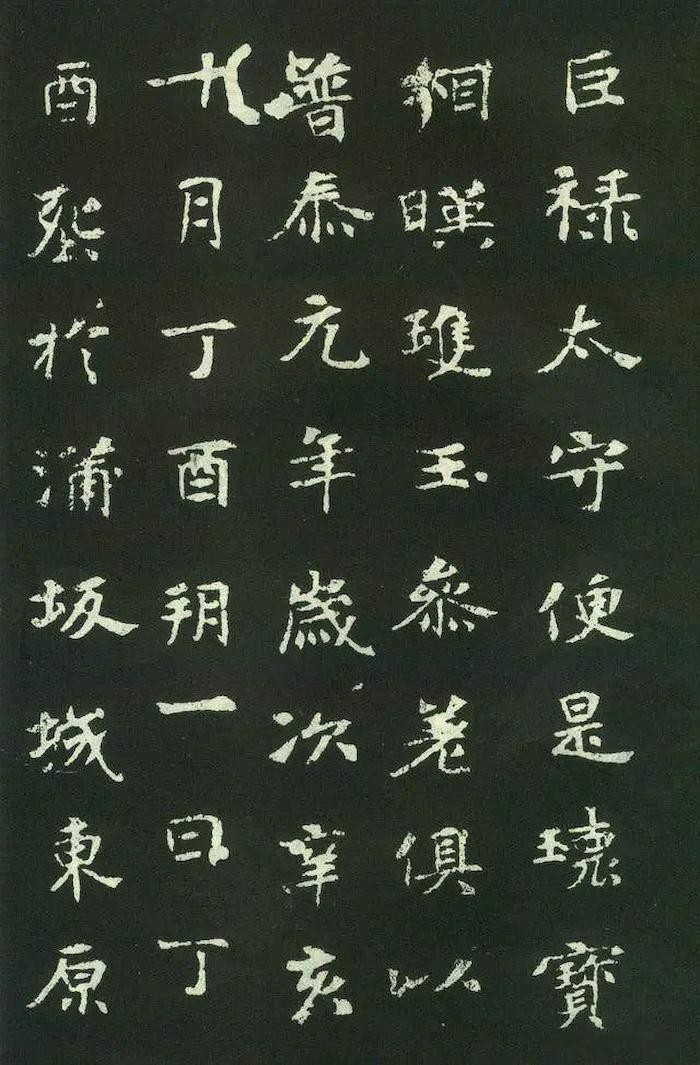 巨禄太守便是瓌寳
相暎雙玉叅差俱以
普泰元年歳次辛亥
九月丁酉朔一日丁
酉塟於蒲坂城東原